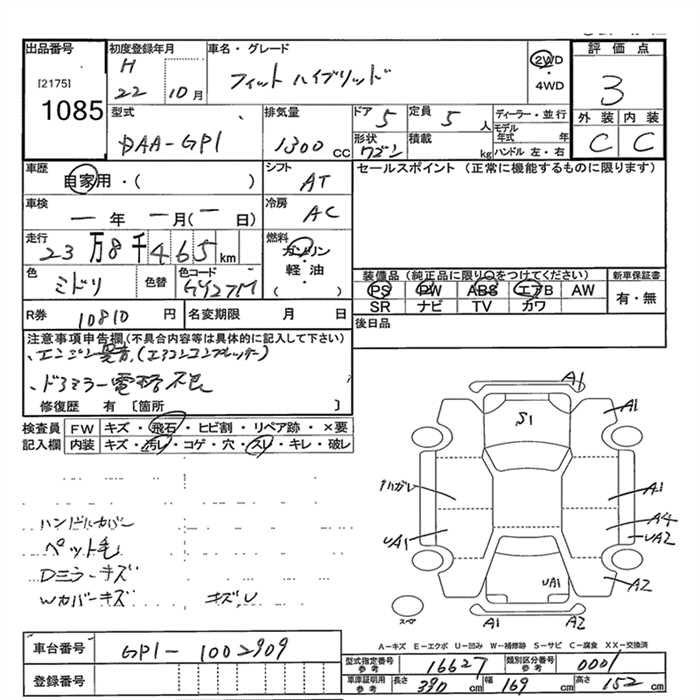 出品番号
[2175]
1085
初度登録年月
H
22 10月
車名・グレード
フィット ハイブリッド
2WD
・
4WD
評価点
3
外装 内装
C C
型式
DAA-GP1
排気量
1300 CC
ドア 5
定員 5 人
形状 ワゴン
積載 kg
ディーラー・並行
モデル年式 年
ハンドル 左・右
車歴
自家用・( )
シフト
AT
車検
一年 一月(一日)
冷房
AC
走行
23万8千465km
燃料
ガソリン
軽・油
( )
色
ミドリ
色替
色コード
GY27M
R券 10810円
名変期限 月 日
セールスポイント (正常に機能するものに限ります)
装備品 (純正品に限り○をつけてください)
PS PW ABS エアB AW
SR ナビ TV カワ
新車保証書
有・無
後日品
注意事項申告欄(不具合内容等は具体的に記入して下さい)
、エンジン異音(エアコンコンプレッサー)
、ドアミラー電格不良
修復歴 有 [箇所 ]
検査員
記入欄
FW キズ・飛石・ヒビ割・リペア跡・×要
内装 キズ・汚レ・コゲ・穴・スレ・キレ・破レ
ハンドルカバー
ペット毛
Dミラーキズ
Wカバーキズ キズU
A1
S1
A1
ハガレ
A1
A4
UA1
UA2
UA1
A2
スペア
A1
A2
A-キズ E-エクボ U-凹み W-補修跡 S-サビ C-腐食 XX-交換済
車台番号 GP1-1002909
登録番号
型式指定番号 参考 16627
類別区分番号 参考 0001
車庫証明用 参考 長さ 390 cm 幅 169 cm 高さ 152 cm